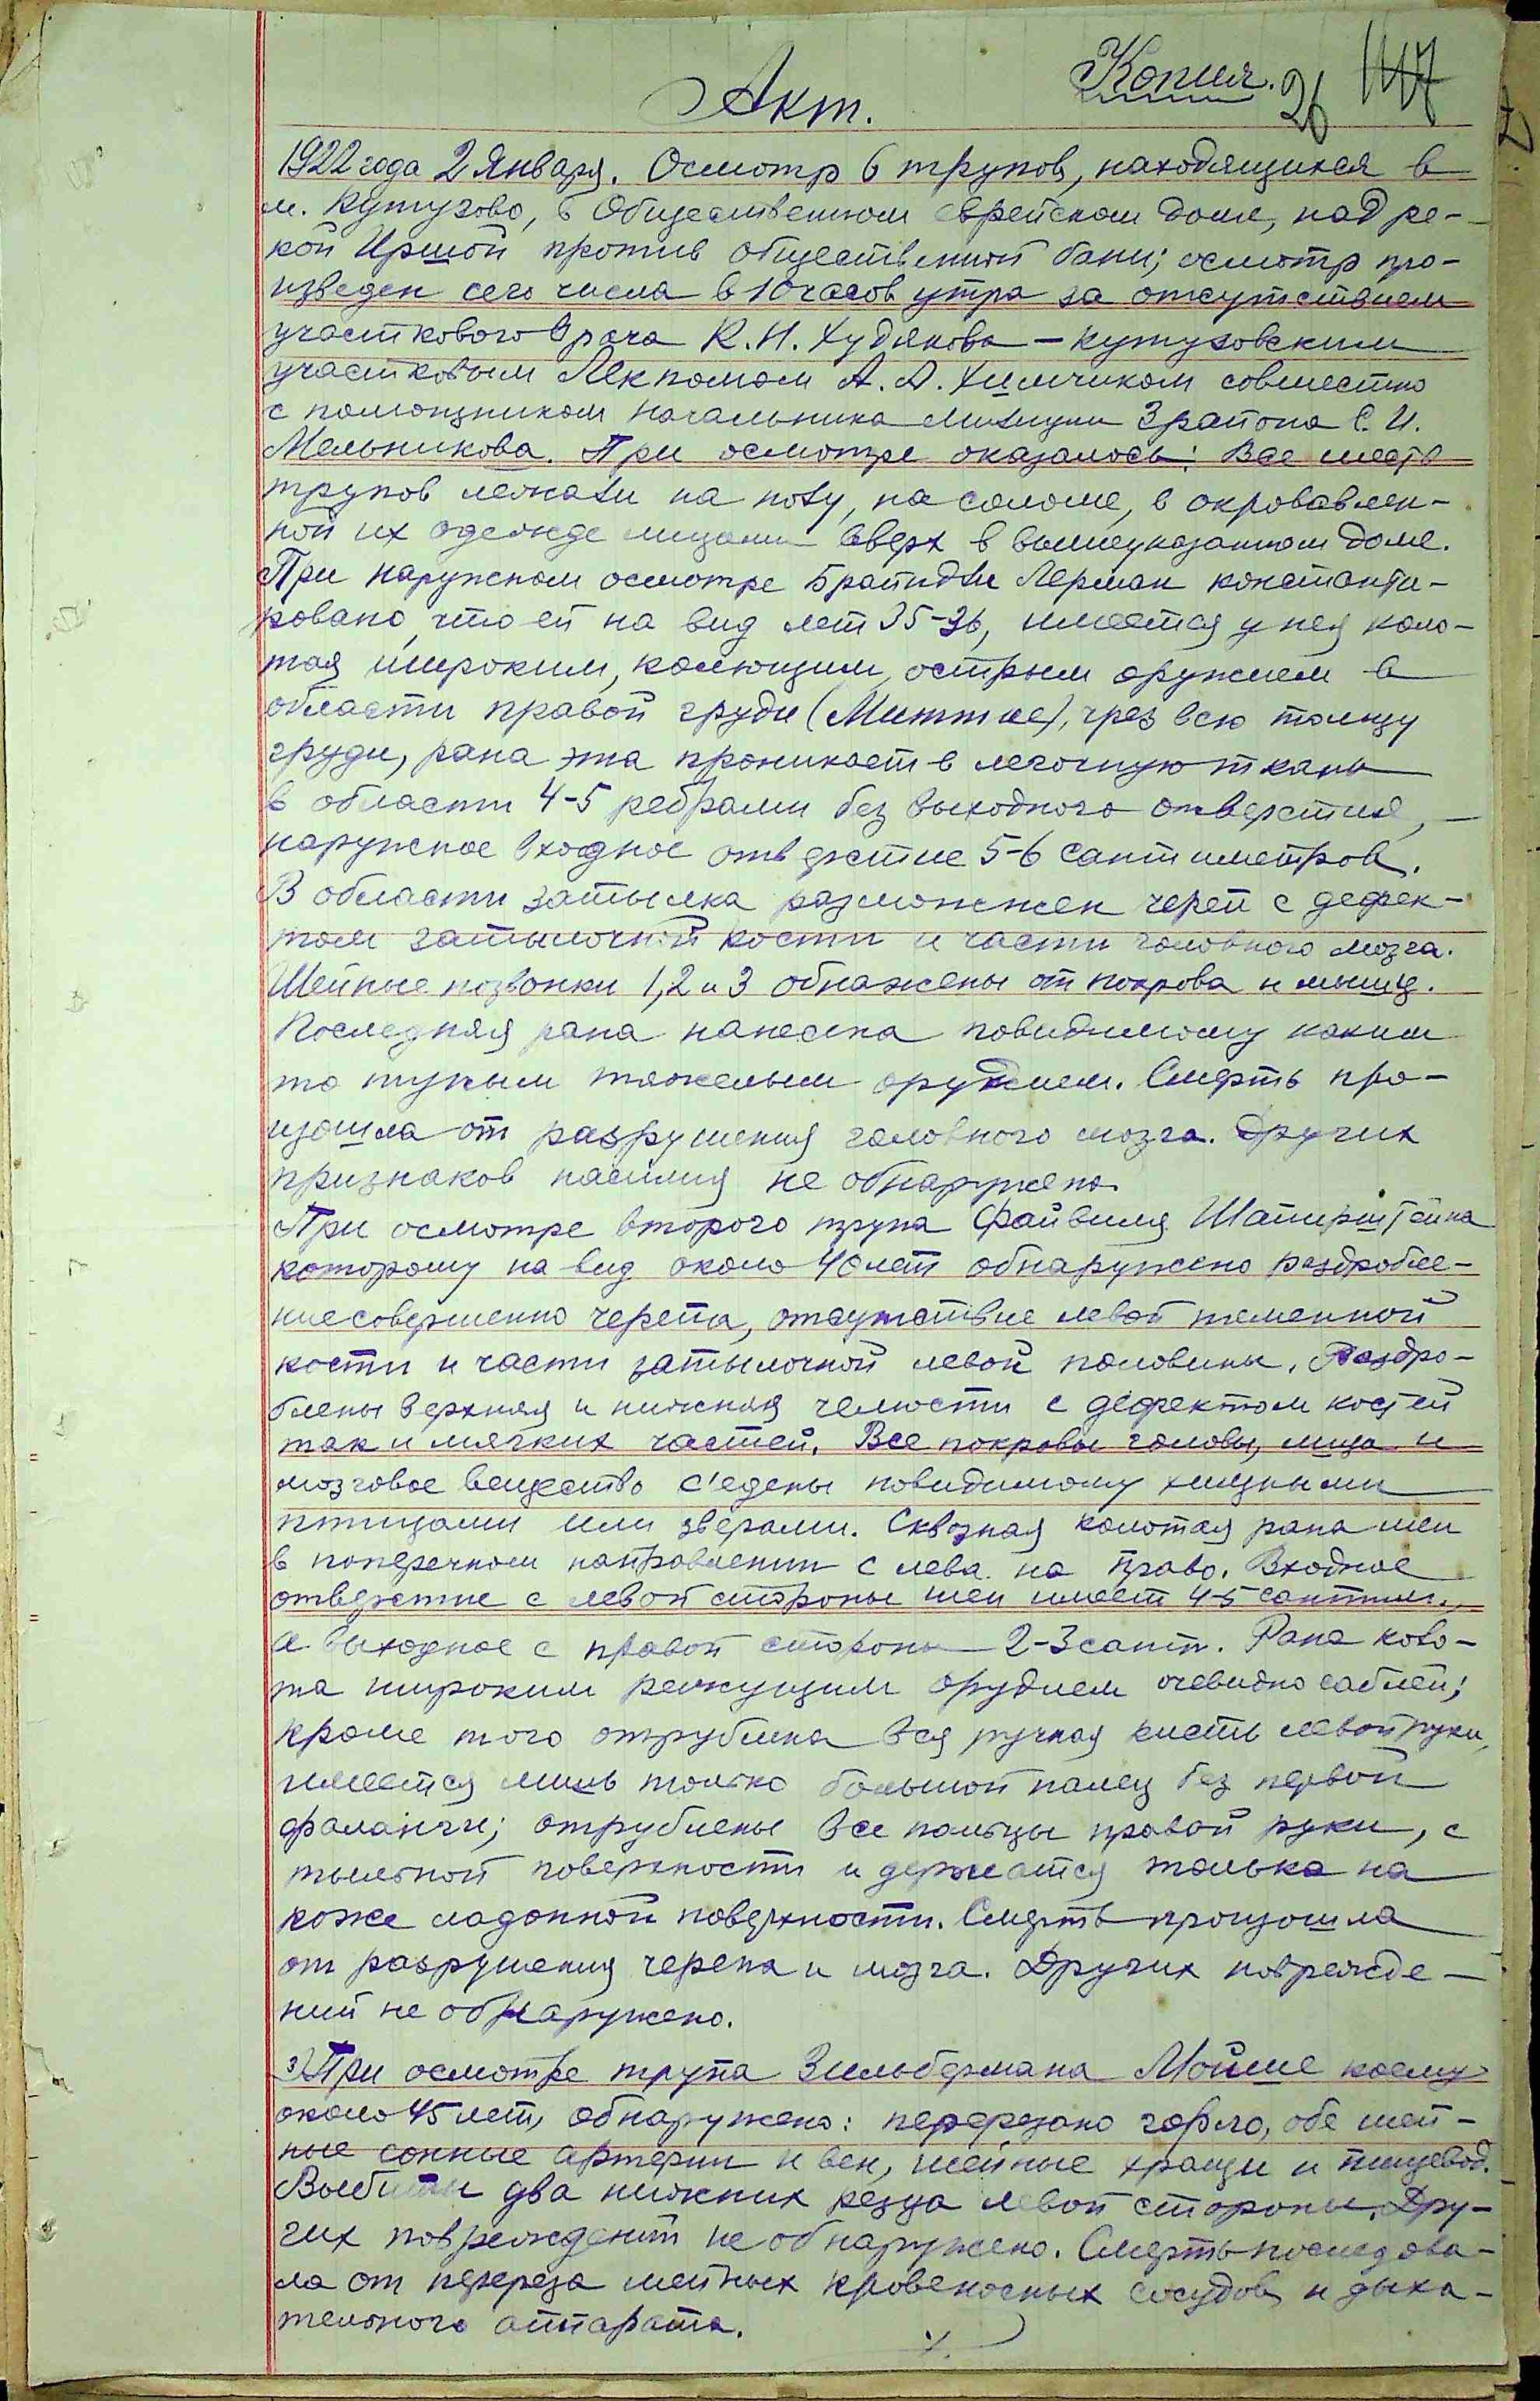 Копия.
26
Акт.
1922 года 2 Января. Осмотр 6 трупов, находящихся в
м. Кутузово, в Общественном Еврейском доме, над ре-
кой Иршой против общественной бани; осмотр про-
изведен сего числа в 10 часов утра за отсутствием
участкового Врача К.Н. Худякова – Кутузовским
участковым Лекпомом А.А. Химчиком совместно
с помощником Начальника Милиции 3 района С.И.
Мельникова. При осмотре оказалось: Все шесть
трупов лежали на полу, на соломе, в окровавлен-
ной их одежде лицами вверх в вышеуказанном доме.
При наружном осмотре Брайндли Лерман константи-
ровано, что ей на вид лет 35-36, имеется у нея коло-
тая широким, колющим, острым оружием в
области правой груди (Миттие), чрез всю толщу
груди, рана эта проникает в легочную ткань
в области 4-5 ребрами без выходного отверстия,
наружное входное отверстие 5-6 сантиметров.
В области затылка размозжен череп с дефек-
том затылочной кости и части головного мозга.
Шейные позвонки 1, 2 и 3 обнажены от покрова и мышц.
Последняя рана нанесена повидимому каким
то тупым тяжелым орудием. Смерть про-
изошла от разрушения головного мозга. Других
признаков насилия не обнаружено.
При осмотре второго трупа Файвиля Шапирштейна
которому на вид около 40 лет обнаружено раздробле-
ние совершенно черепа, отсутствие левой теменной
кости и части затылочной левой половины. Раздро-
блены верхняя и нижняя челюсти с дефектом костей
так и мягких частей. Все покровы головы, лица и
мозговое вещество с'едены повидимому хищными
птицами или зверами. Сквозная колотая рана шеи
в поперечном направлении с лева на право. Входное
отверстие с левой стороны шеи имеет 4-5 сантим.,
а выходное с правой стороны 2-3 сант. Рана коло-
та широким режущим орудием очевидно саблей;
кроме того отрублена вся ручная кисть левой руки,
имеется лишь только большой палец без первой
фаланги; отрублены все пальцы правой руки, с
тыльной поверхности и держатся только на
коже ладонной поверхности. Смерть произошла
от разрушения черепа и мозга. Других поврежде-
ний не обнаружено.
3) При осмотре трупа Зильбермана Мойше коему
около 45 лет, обнаружено: перерезано горло, обе шей-
ные сонные артерии и вен, шейные хрящи и пищевод.
Выбиты два нижних резца левой стороны. Дру-
гих повреждений не обнаружено. Смерть последова-
ла от перереза шейных кровеносных сосудов и дыха-
тельного аппарата.